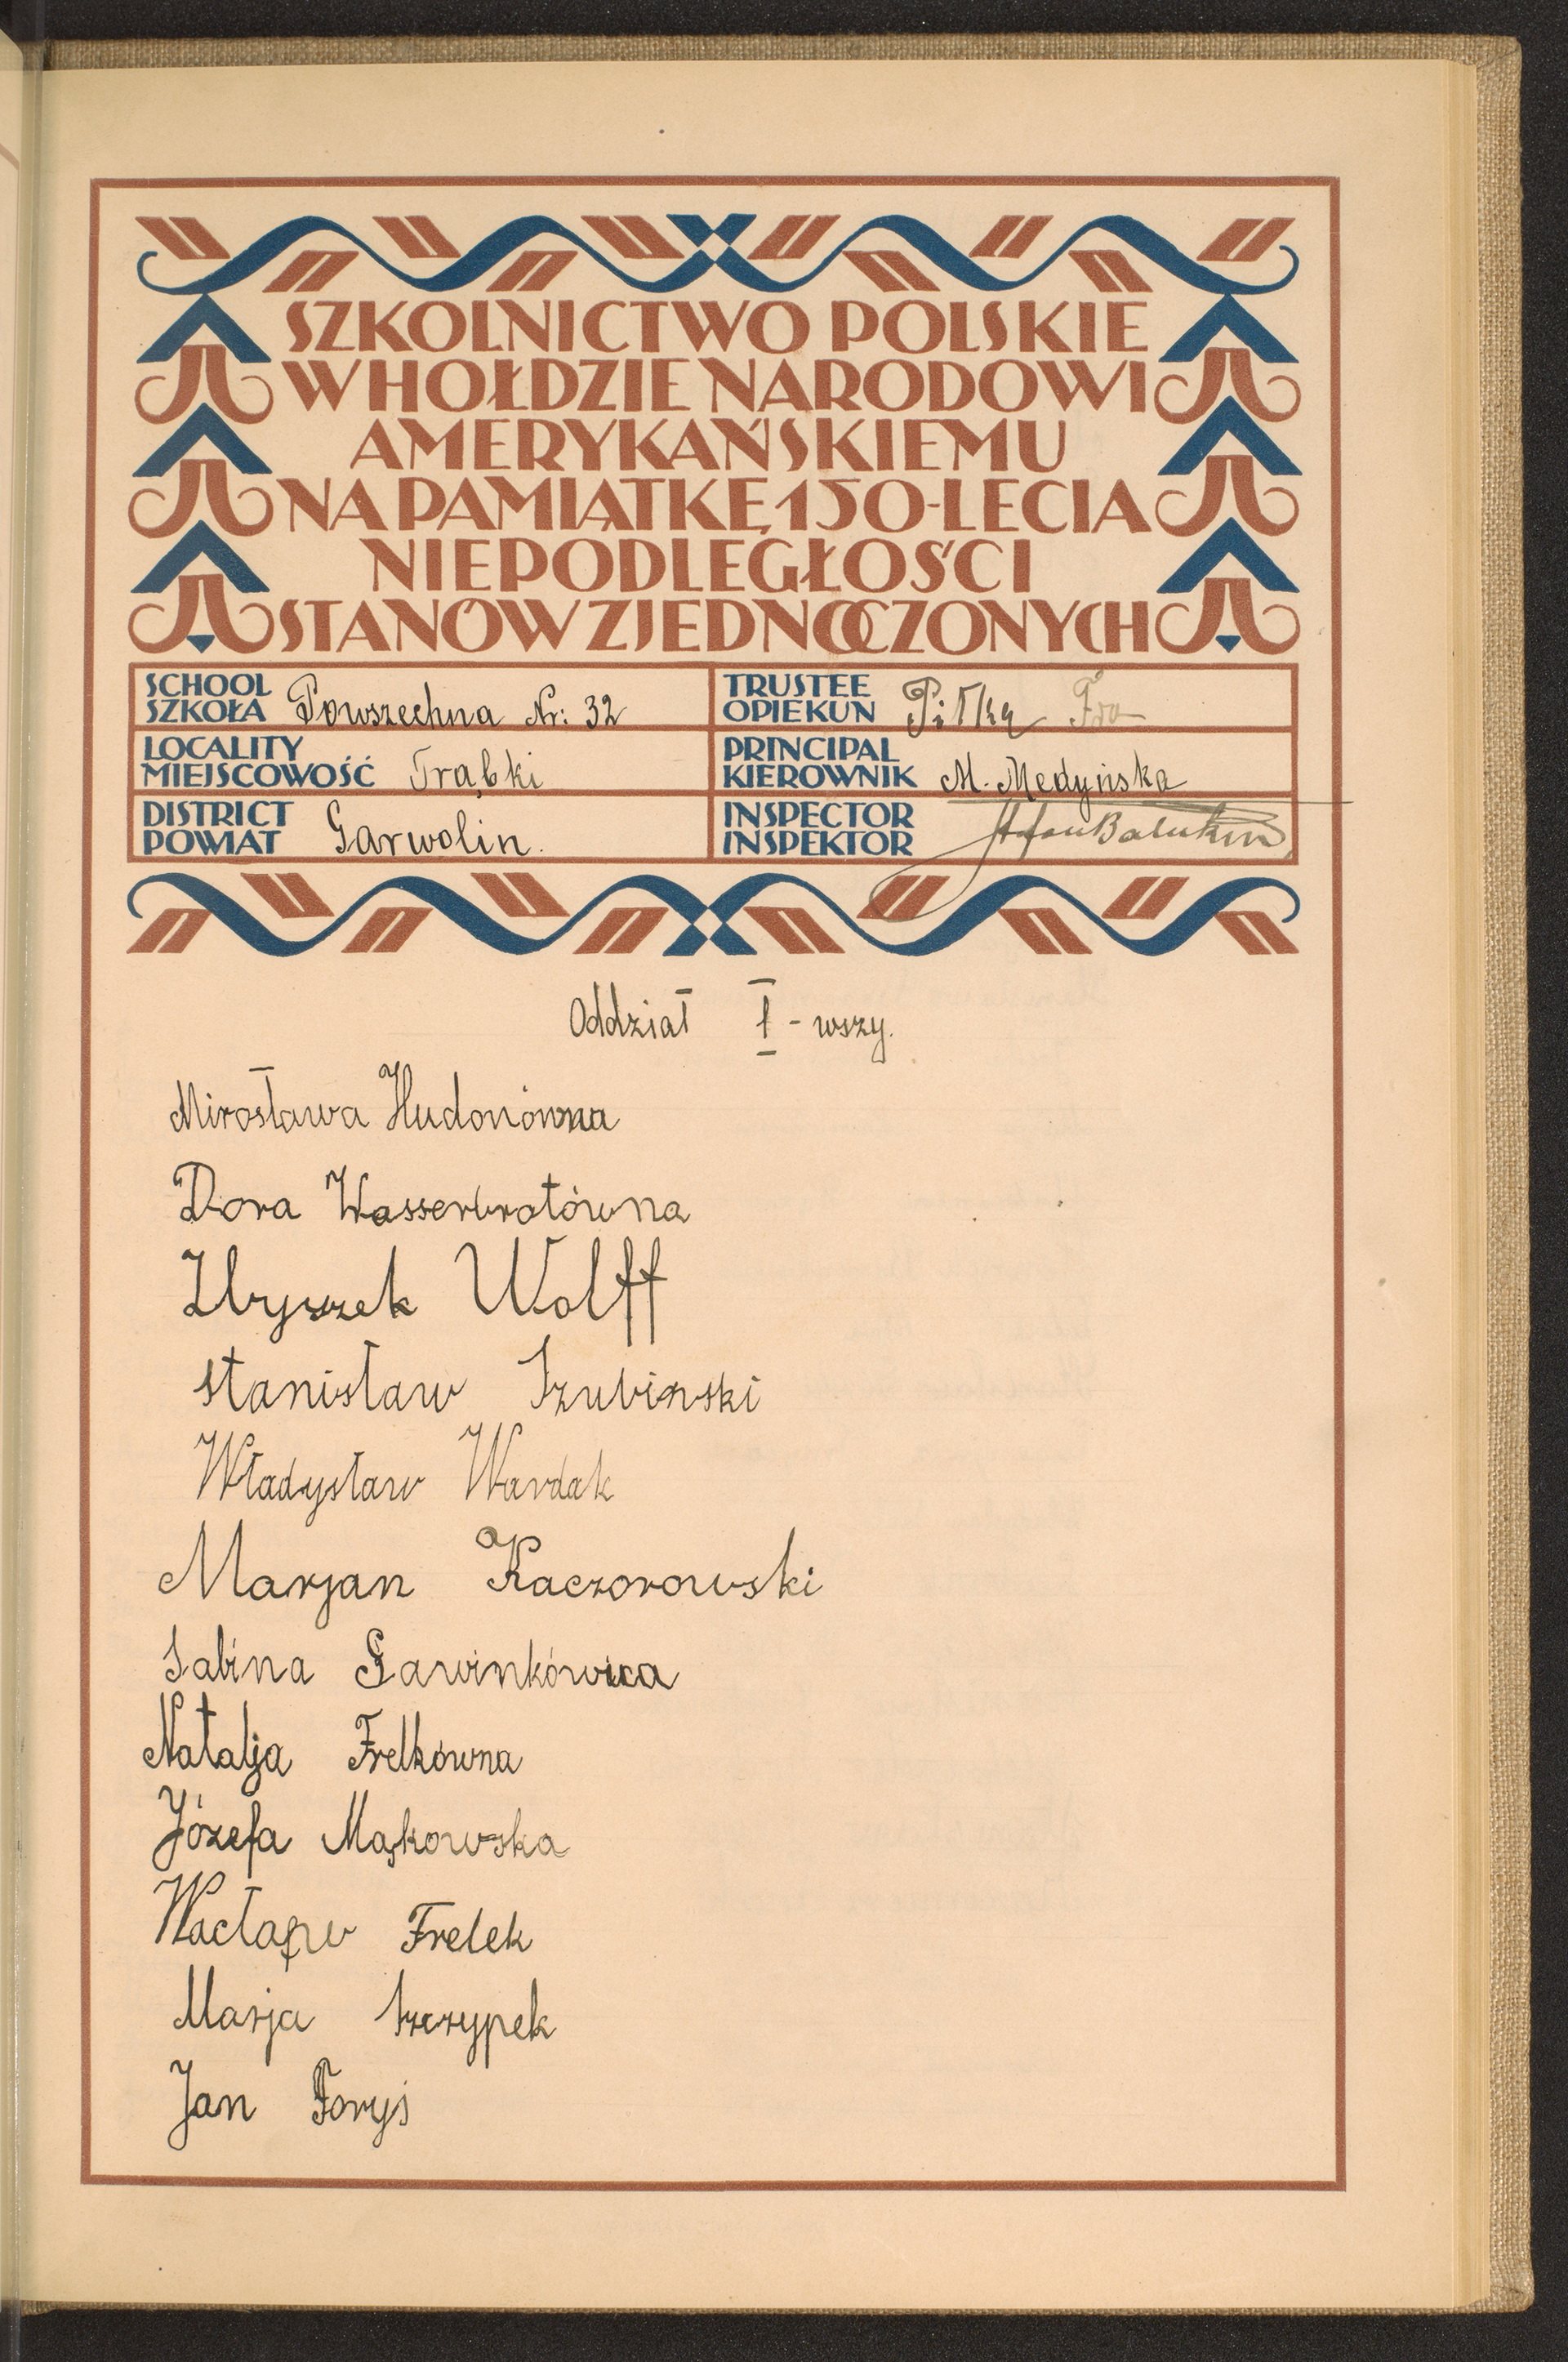 SZKOLNICTWO POLSKIE
W HOŁDZIE NARODOWI
AMERYKAŃSKIEMU
NA PAMIĄTKĘ 150-LECIA
NIEPODLEGŁOŚCI
STANÓW ZJEDNOCZONYCH
SCHOOL
SZKOŁA Powszechna Nr: 32
TRUSTEE
OPIEKUN Piłka Fra
LOCALITY
MIEJSCOWOŚĆ Trąbki
PRINCIPAL
KIEROWNIK M. Medyńska
DISTRICT
POWIAT Garwolin.
INSPECTOR
INSPEKTOR Stefan
Oddział I - wszy.
Mirosława Hudonówna
Dora Wasserbrotówna
Zbyszek Wolff
Stanisław Szubinski
Władysław Wardak
Marjan Kaczorowski
Sabina Gawinkówna
Natalja Frelkówna
Józefa Mąkowska
Wacław Frelek
Marja Szczypek
Jan Foryś